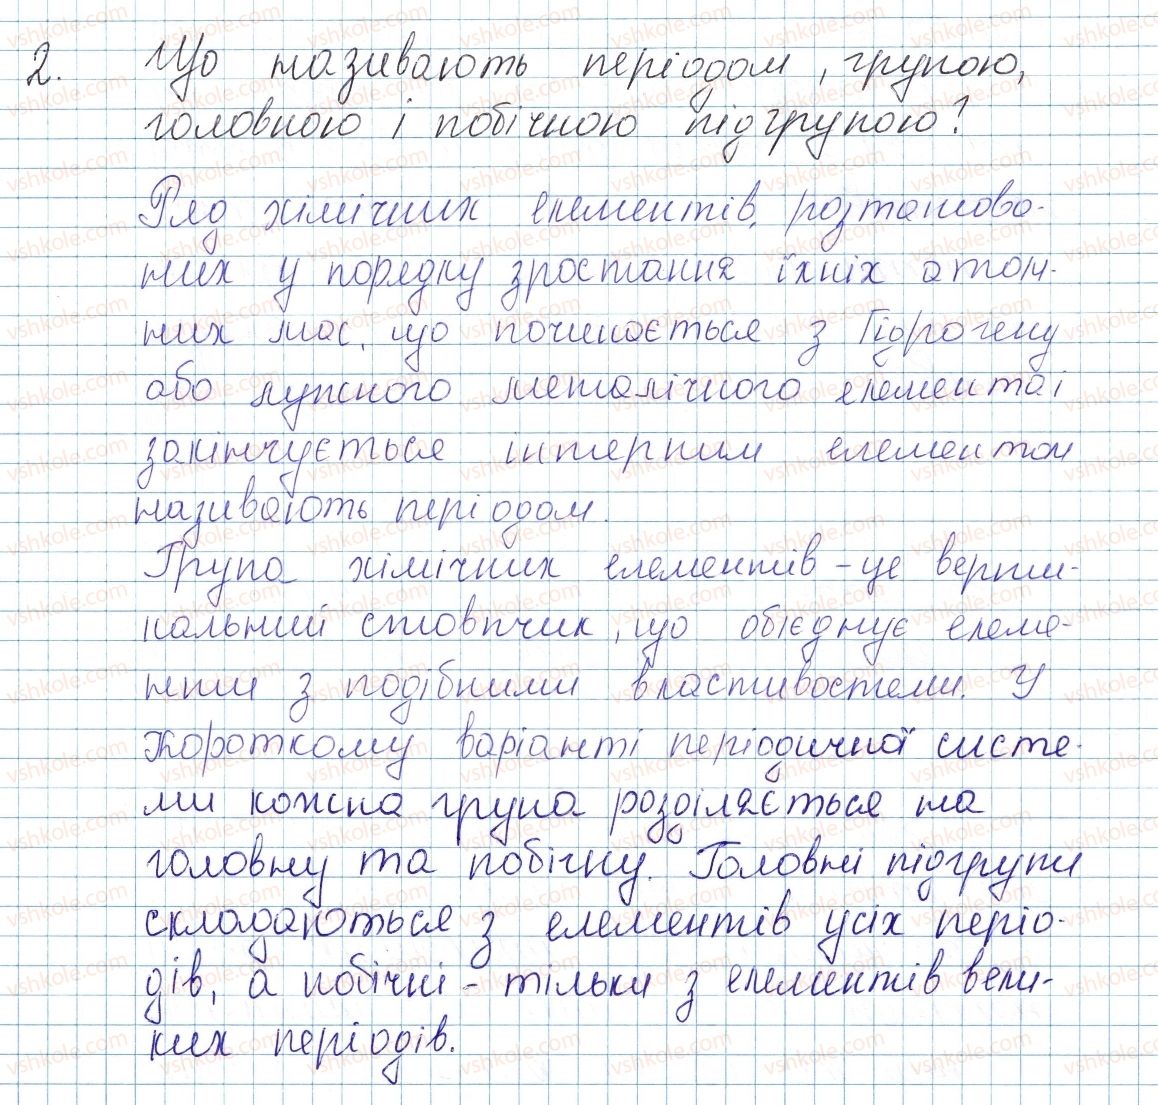 2. Що називають періодом, групою,
головною і побічною підгрупою?
Ряд хімічних елементів, розташова-
них у порядку зростання їхніх атом-
них мас, що починається з Гідрогену
або лужного металічного елемента і
закінчується інертним елементом
називають періодом.
Група хімічних елементів - це верти-
кальний стовпчик, що об'єднує елеме-
нти з подібними властивостями. У
короткому варіанті періодичної систе-
ми кожна група розділяється на
головну та побічну. Головні підгрупи
складаються з елементів усіх періо-
дів, а побічні - тільки з елементів вели-
ких періодів.